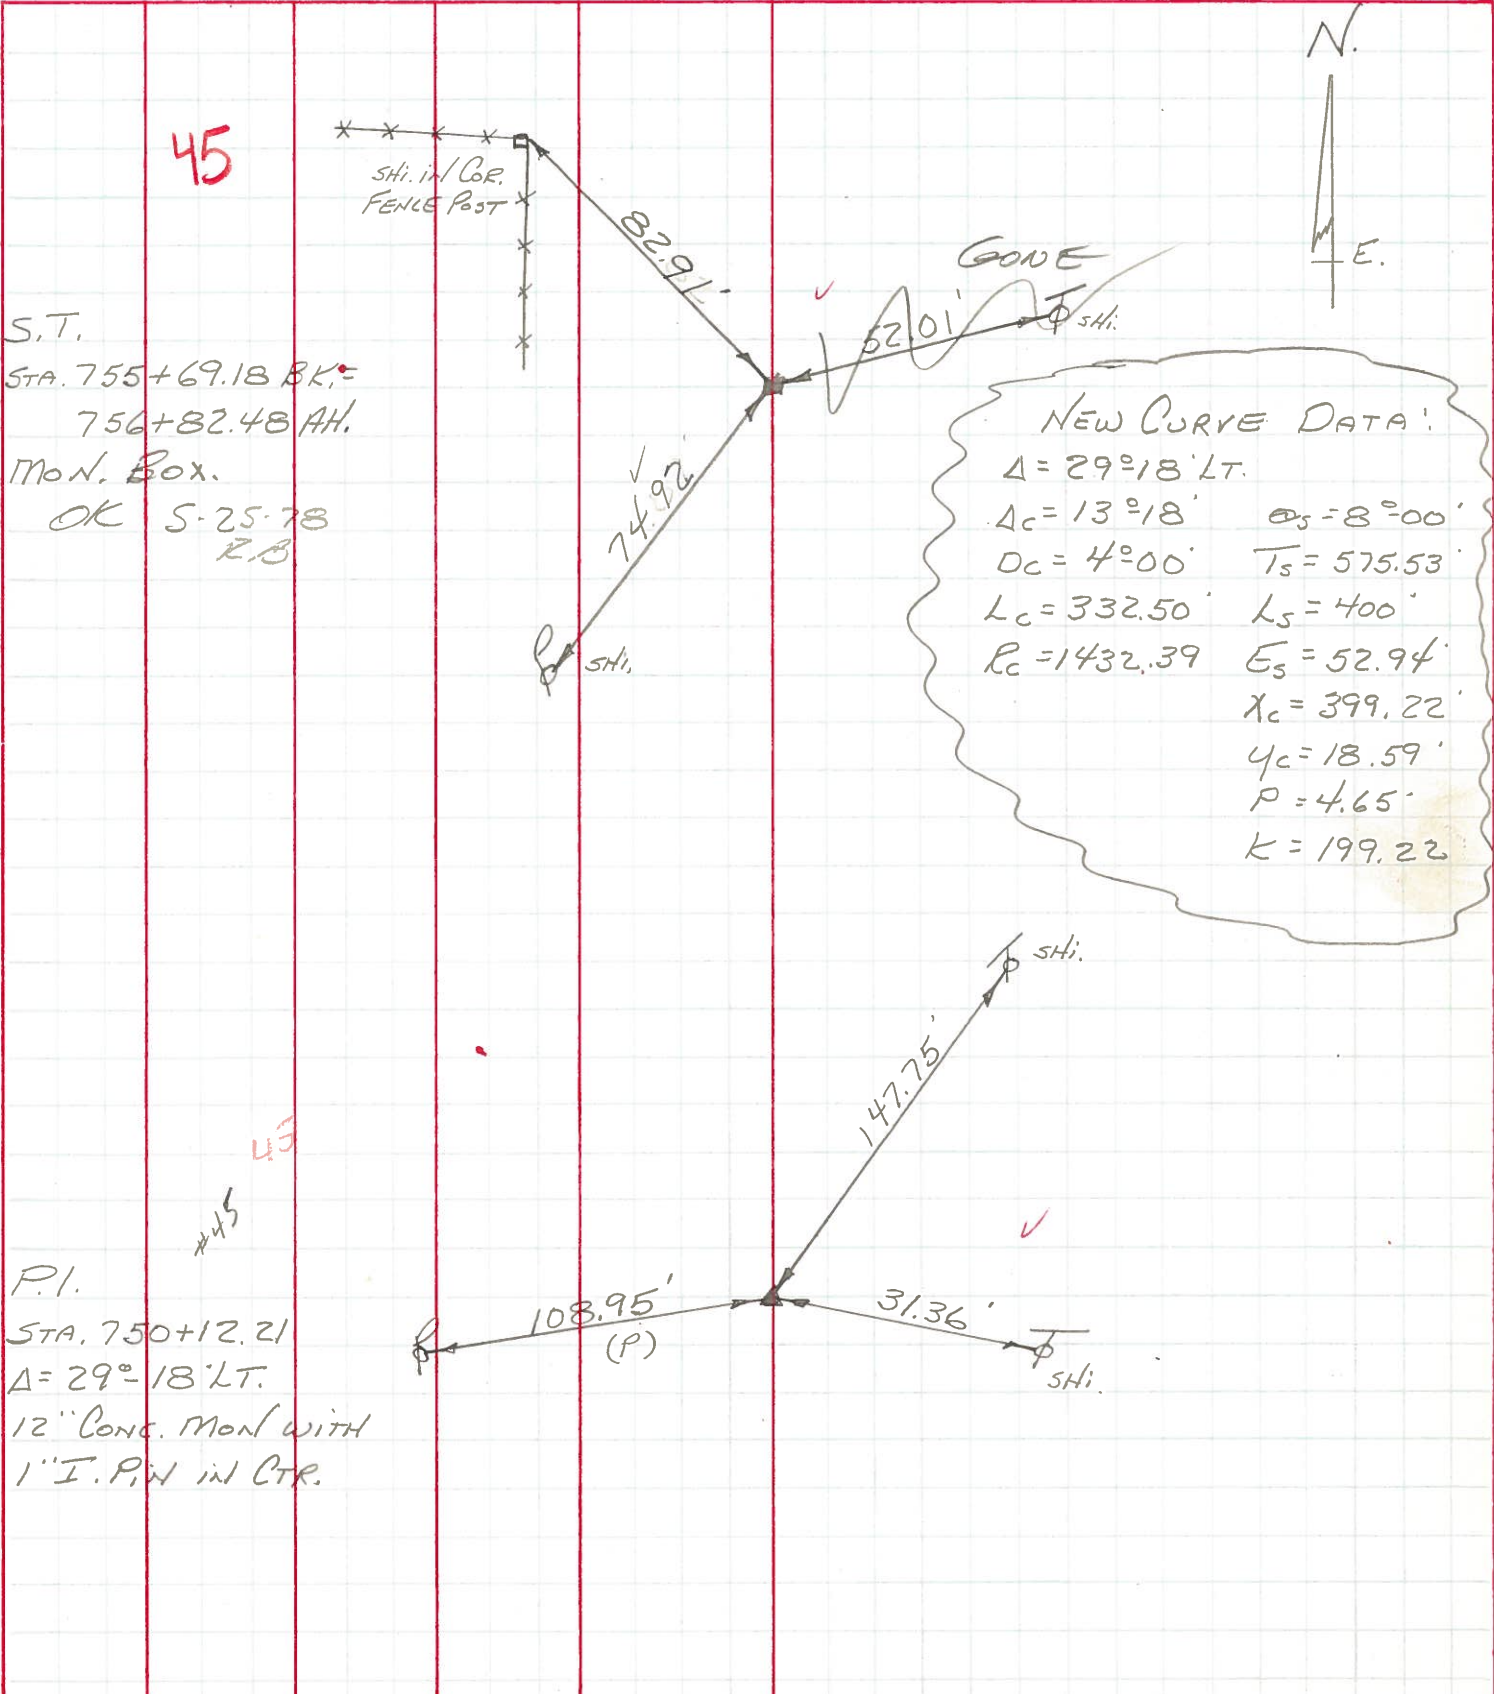 N.
E.
45
SHi. in COR.
FENCE POST
82.91'
GONE
52.01'
SHi.
S.T.
STA. 755+69.18 BK.=
756+82.48 AH.
MON. BOX.
OK 5-25-78
R.B
74.92'
SHi.
NEW CURVE DATA:
Δ = 29°-18' LT.
Δc = 13°-18' θs = 8°-00'
Dc = 4°-00' Ts = 575.53'
Lc = 332.50' Ls = 400'
Rc = 1432.39 Es = 52.94'
Xc = 399.22'
Yc = 18.59'
P = 4.65'
K = 199.22
SHi.
147.75'
45
#45
P.I.
STA. 750+12.21
Δ = 29°-18' LT.
12" CONC. MON WITH
1" I. PiN iN CTR.
108.95'
(P)
31.36'
SHi.